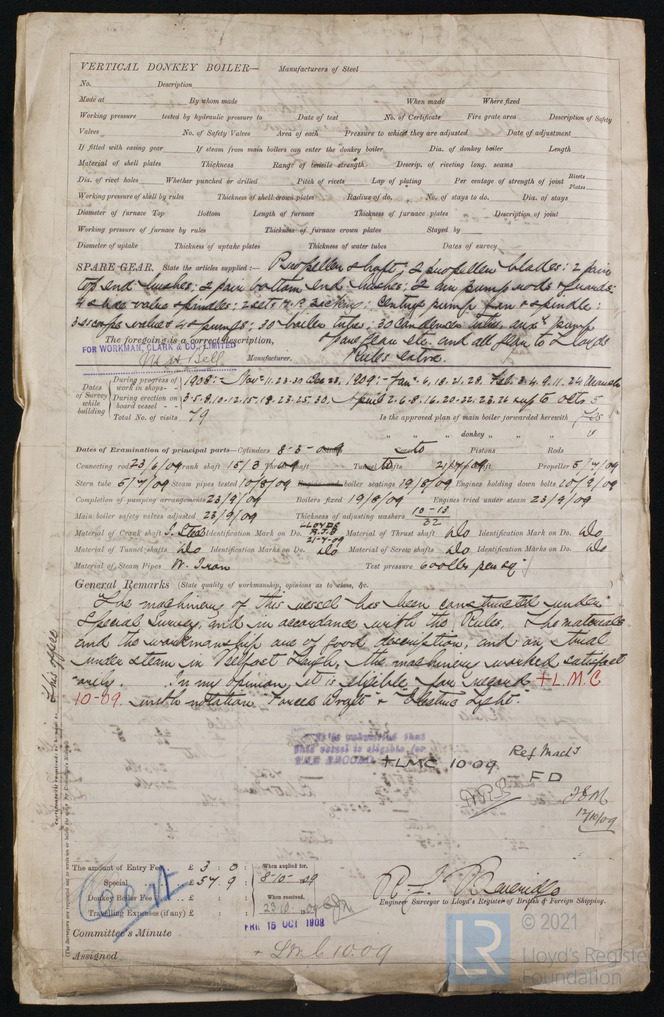 VERTICAL DONKEY BOILER— Manufacturers of Steel
No. Description
Made at By whom made When made Where fixed
Working pressure tested by hydraulic pressure to Date of test No. of Certificate Fire grate area Description of Safety
Valves No. of Safety Valves Area of each Pressure to which they are adjusted Date of adjustment
If fitted with easing gear If steam from main boilers can enter the donkey boiler Dia. of donkey boiler Length
Material of shell plates Thickness Range of tensile strength Descrip. of riveting long. seams
Dia. of rivet holes Whether punched or drilled Pitch of rivets Lap of plating Per centage of strength of joint Rivets Plates
Working pressure of shell by rules Thickness of shell crown plates Radius of do. No. of stays to do. Dia. of stays
Diameter of furnace Top Bottom Length of furnace Thickness of furnace plates Description of joint
Working pressure of furnace by rules Thickness of furnace crown plates Stayed by
Diameter of uptake Thickness of uptake plates Thickness of water tubes Dates of survey
SPARE GEAR. State the articles supplied:— Propeller shaft; 2 propeller blades: 2 pair
top end bushes: 2 pair bottom end bushes: 2 air pump rods & guards:
4 slide valve spindles: 2 sets H.P. packing: Centrif pump fan & spindle:
valves 4 pumps: 30 boiler tubes: 30 Condenser tubes, pump
The foregoing is a correct description, & all gear to Lloyds
FOR WORKMAN, CLARK & CO. LIMITED
Bell Manufacturer. Rules extra.
Dates of Survey while building
During progress of work in shops - - 1908:- Nov. 11. 23. 30 Dec 23, 1909:- Jan. 6. 18. 21. 28. Feb. 3. 4. 9. 11. 24 March
During erection on board vessel - - 3. 5. 8. 10. 12. 15. 18. 23. 25. 30. April 2. 6. 8. 16. 20. 22. 23. 26 & up to Oct. 5
Total No. of visits 79 Is the approved plan of main boiler forwarded herewith Yes
" " " donkey " " " "
Dates of Examination of principal parts—Cylinders 8-3-09 to Pistons Rods
Connecting rods 23/6/09 Crank shaft 15/3/09 Thrust shaft to Tunnel shafts Propeller 5/7/09
Stern tube 5/7/09 Steam pipes tested 10/8/09 Engine and boiler seatings 19/8/09 Engines holding down bolts 10/9/09
Completion of pumping arrangements 23/9/09 Boilers fixed 19/8/09 Engines tried under steam 23/9/09
Main boiler safety valves adjusted 23/9/09 Thickness of adjusting washers 10-13/32
Material of Crank shaft I. Steel Identification Mark on Do. LLOYDS 21-4-09 Material of Thrust shaft do Identification Mark on Do. do
Material of Tunnel shafts do Identification Marks on Do. do Material of Screw shafts do Identification Marks on Do. do
Material of Steam Pipes W. Iron Test pressure 600 lbs per sq"
General Remarks (State quality of workmanship, opinions as to class, &c.
The machinery of this vessel has been constructed under
Special Survey, and in accordance with the Rules. The materials
and the workmanship are of good description, and on trial
under steam in Belfast Lough, the machinery worked satisfact
orily. In my opinion, it is eligible for record + L.M.C
10-09. with notation "Forced Draft" & "Electric Light".
It is submitted that
this vessel is eligible for
THE RECORD + LMC 10.09. Ref Mach'y
F D
12/10/09
This office
The amount of Entry Fee . . £ 3 : 0 When applied for,
Special . . . . £ 54 9 : 8-10-09
Donkey Boiler Fee . . £ : : When received,
Travelling Expenses (if any) £ : : 23.10.09
Engineer Surveyor to Lloyd's Register of British & Foreign Shipping.
Committee's Minute FRI. 15 OCT 1909
Assigned + LMC 10.09
LR
© 2021
Lloyd's Register
Foundation